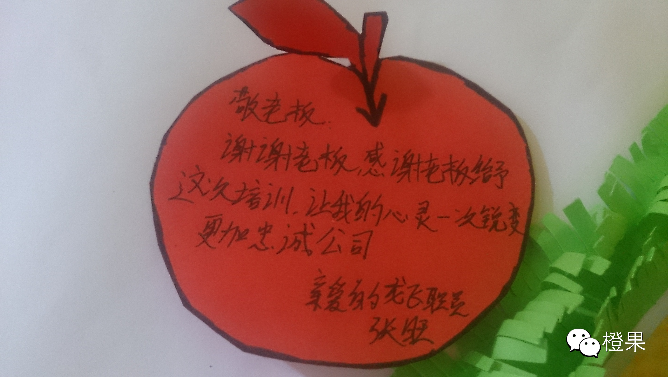 敬老板
谢谢老板,感谢老板给予
这次培训,让我的心灵一次锐变
更加忠诚公司
亲爱的龙飞职员
张旺
橙果